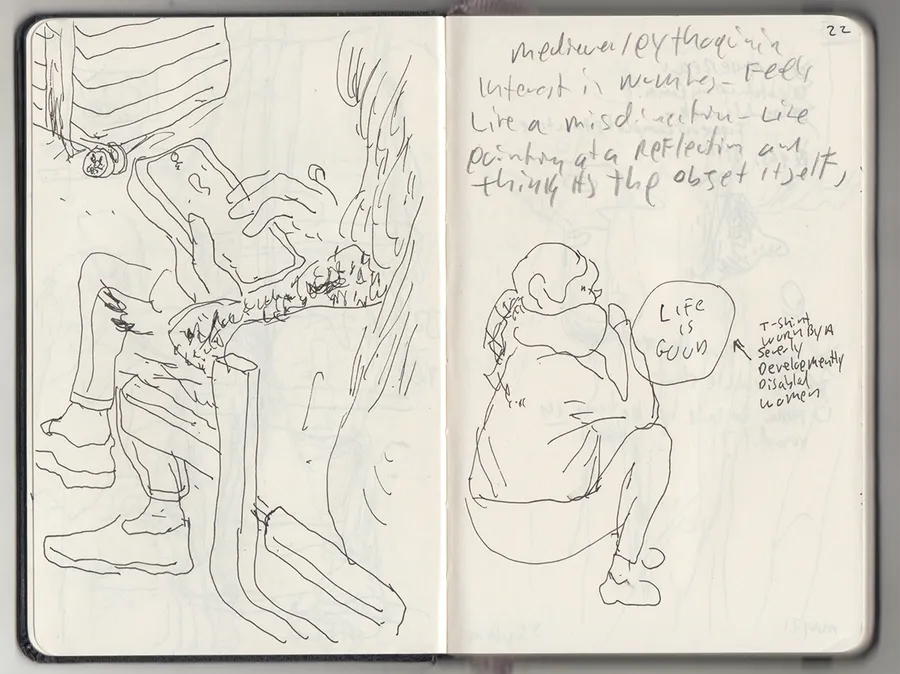 22
medieval/
Interest in numbers – Feels
Like a misdirection – Like
pointing at a Reflection and
think its the object itself,
LIFE
IS
GOOD
T-shirt
WORN BY A
Severly
Developmently
Disabled
women